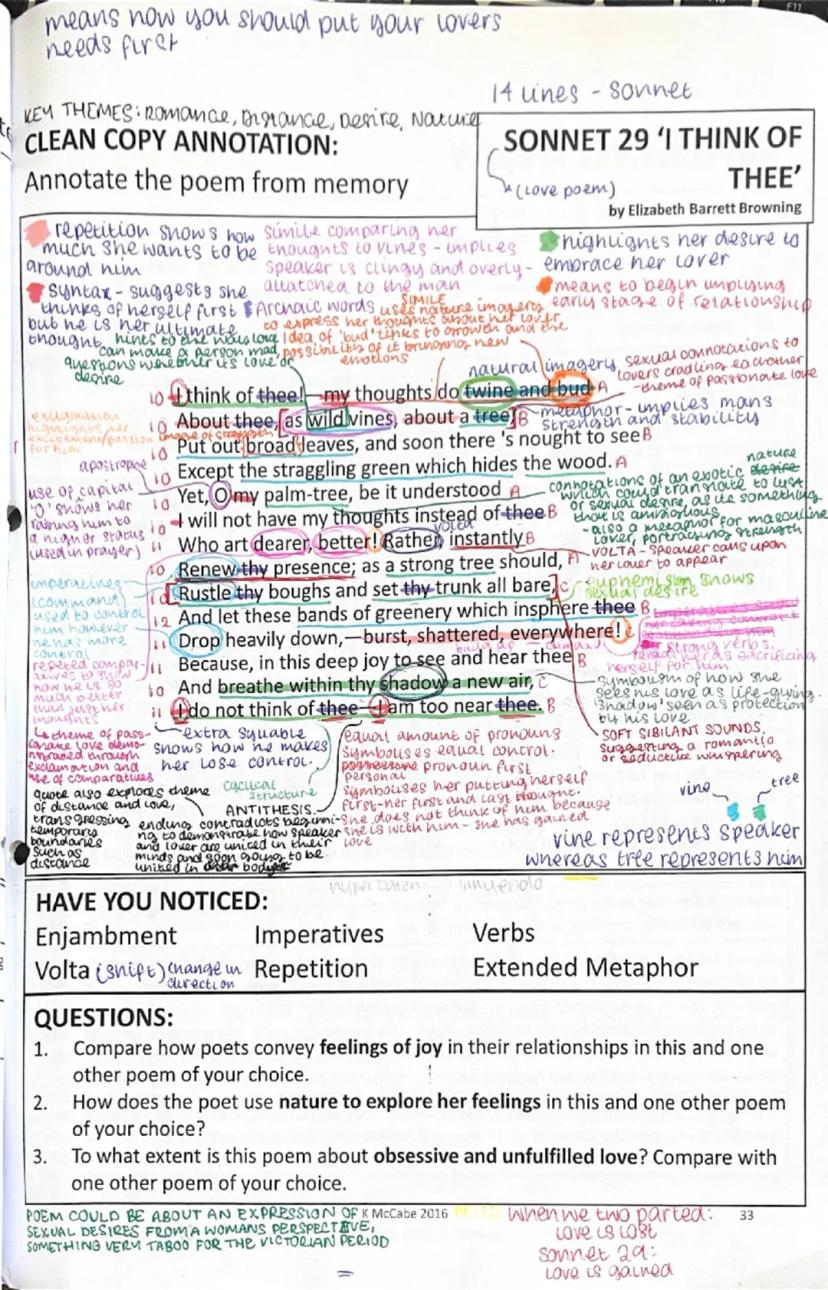 means how you should put your lovers
needs first
14 lines - sonnet
KEY THEMES: Romance, Distance, Desire, Nature
CLEAN COPY ANNOTATION:
Annotate the poem from memory
SONNET 29 'I THINK OF
THEE'
(love poem)
by Elizabeth Barrett Browning
repetition shows how
much she wants to be
around him
simile comparing her
thoughts to vines - implies
speaker is clingy and overly-
attatched to the man
highlights her desire to
embrace her lover
syntax - suggests she
thinks of herself first
but he is her ultimate
thought
means to begin unpluging
early stage of relationship
Archaic words
hints to the way love
can make a person mad,
questions whether it's love or
desire
SIMILE
uses nature imagery
to express her thoughts about her lover
Idea of 'bud' links to growth and the
possibilities of it bringing new
emotions
natural imagery
sexual connotations to
lovers cradling eachother
- theme of passionate love
10 I think of thee!—my thoughts do twine and bud A
10 About thee, as wild vines, about a tree, B
10 Put out broad leaves, and soon there 's nought to see B
10 Except the straggling green which hides the wood. A
10 Yet, O my palm-tree, be it understood A
10 I will not have my thoughts instead of thee B
11 Who art dearer, better! Rather, instantly B
10 Renew thy presence; as a strong tree should, A
10 Rustle thy boughs and set thy trunk all bare, C
12 And let these bands of greenery which insphere thee B
11 Drop heavily down,—burst, shattered, everywhere! C
11 Because, in this deep joy to see and hear thee B
10 And breathe within thy shadow a new air, C
11 I do not think of thee—I am too near thee. B
exclamation
highlights her
excitement/passion
for him
image of strength
metaphor - implies mans
strength and stability
apostrophe
use of capital
'O' shows her
raising him to
a higher status
(used in prayer)
nature
connotations of an exotic desire
which could translate to lust
or sexual desire, as its something
that is
- also a metaphor for masculine
lover, portraying strength
volta
VOLTA - speaker calls upon
her lover to appear
euphemism shows
sexual desire
imperatives
(command)
used to control
him however
he has more
control
repeted compar-
atives to show
how he is so
much better
than just her
thoughts
build up
strong verbs.
herself for him
symbolism of how she
sees his love as life-giving.
'shadow' seen as protection
by his love
SOFT SIBILANT SOUNDS.
suggesting a romantic
or seductive whispering
theme of pass-
ionate love demo-
nstrated through
exclamation and
use of comparatives
extra syllable
shows how he makes
her lose control.
equal amount of pronouns
symbolises equal control.
possessive pronoun first
personal
symbolises her putting herself
first-her first and last thought.
she does not think of him because
she is with him - she has gained
love
cyclical
structure
quote also explores theme
of distance and love,
transgressing
temporary
boundaries
such as
distance
ANTITHESIS -
ending contradicts beginni-
ng to demonstrate how speaker
and lover are united in their
minds and soon going to be
united in their bodies
vine
tree
vine represents speaker
whereas tree represents him
hyperbaton - innuendo
HAVE YOU NOTICED:
Enjambment Imperatives Verbs
Volta (shift) change in direction Repetition Extended Metaphor
QUESTIONS:
1. Compare how poets convey feelings of joy in their relationships in this and one
other poem of your choice.
2. How does the poet use nature to explore her feelings in this and one other poem
of your choice?
3. To what extent is this poem about obsessive and unfulfilled love? Compare with
one other poem of your choice.
POEM COULD BE ABOUT AN EXPRESSION OF
SEXUAL DESIRES FROM A WOMANS PERSPECTIVE,
SOMETHING VERY TABOO FOR THE VICTORIAN PERIOD
K McCabe 2016
33
When we two parted:
love is lost
Sonnet 29:
love is gained